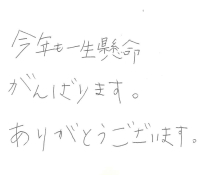 今年も一生懸命
がんばります。
ありがとうございます。